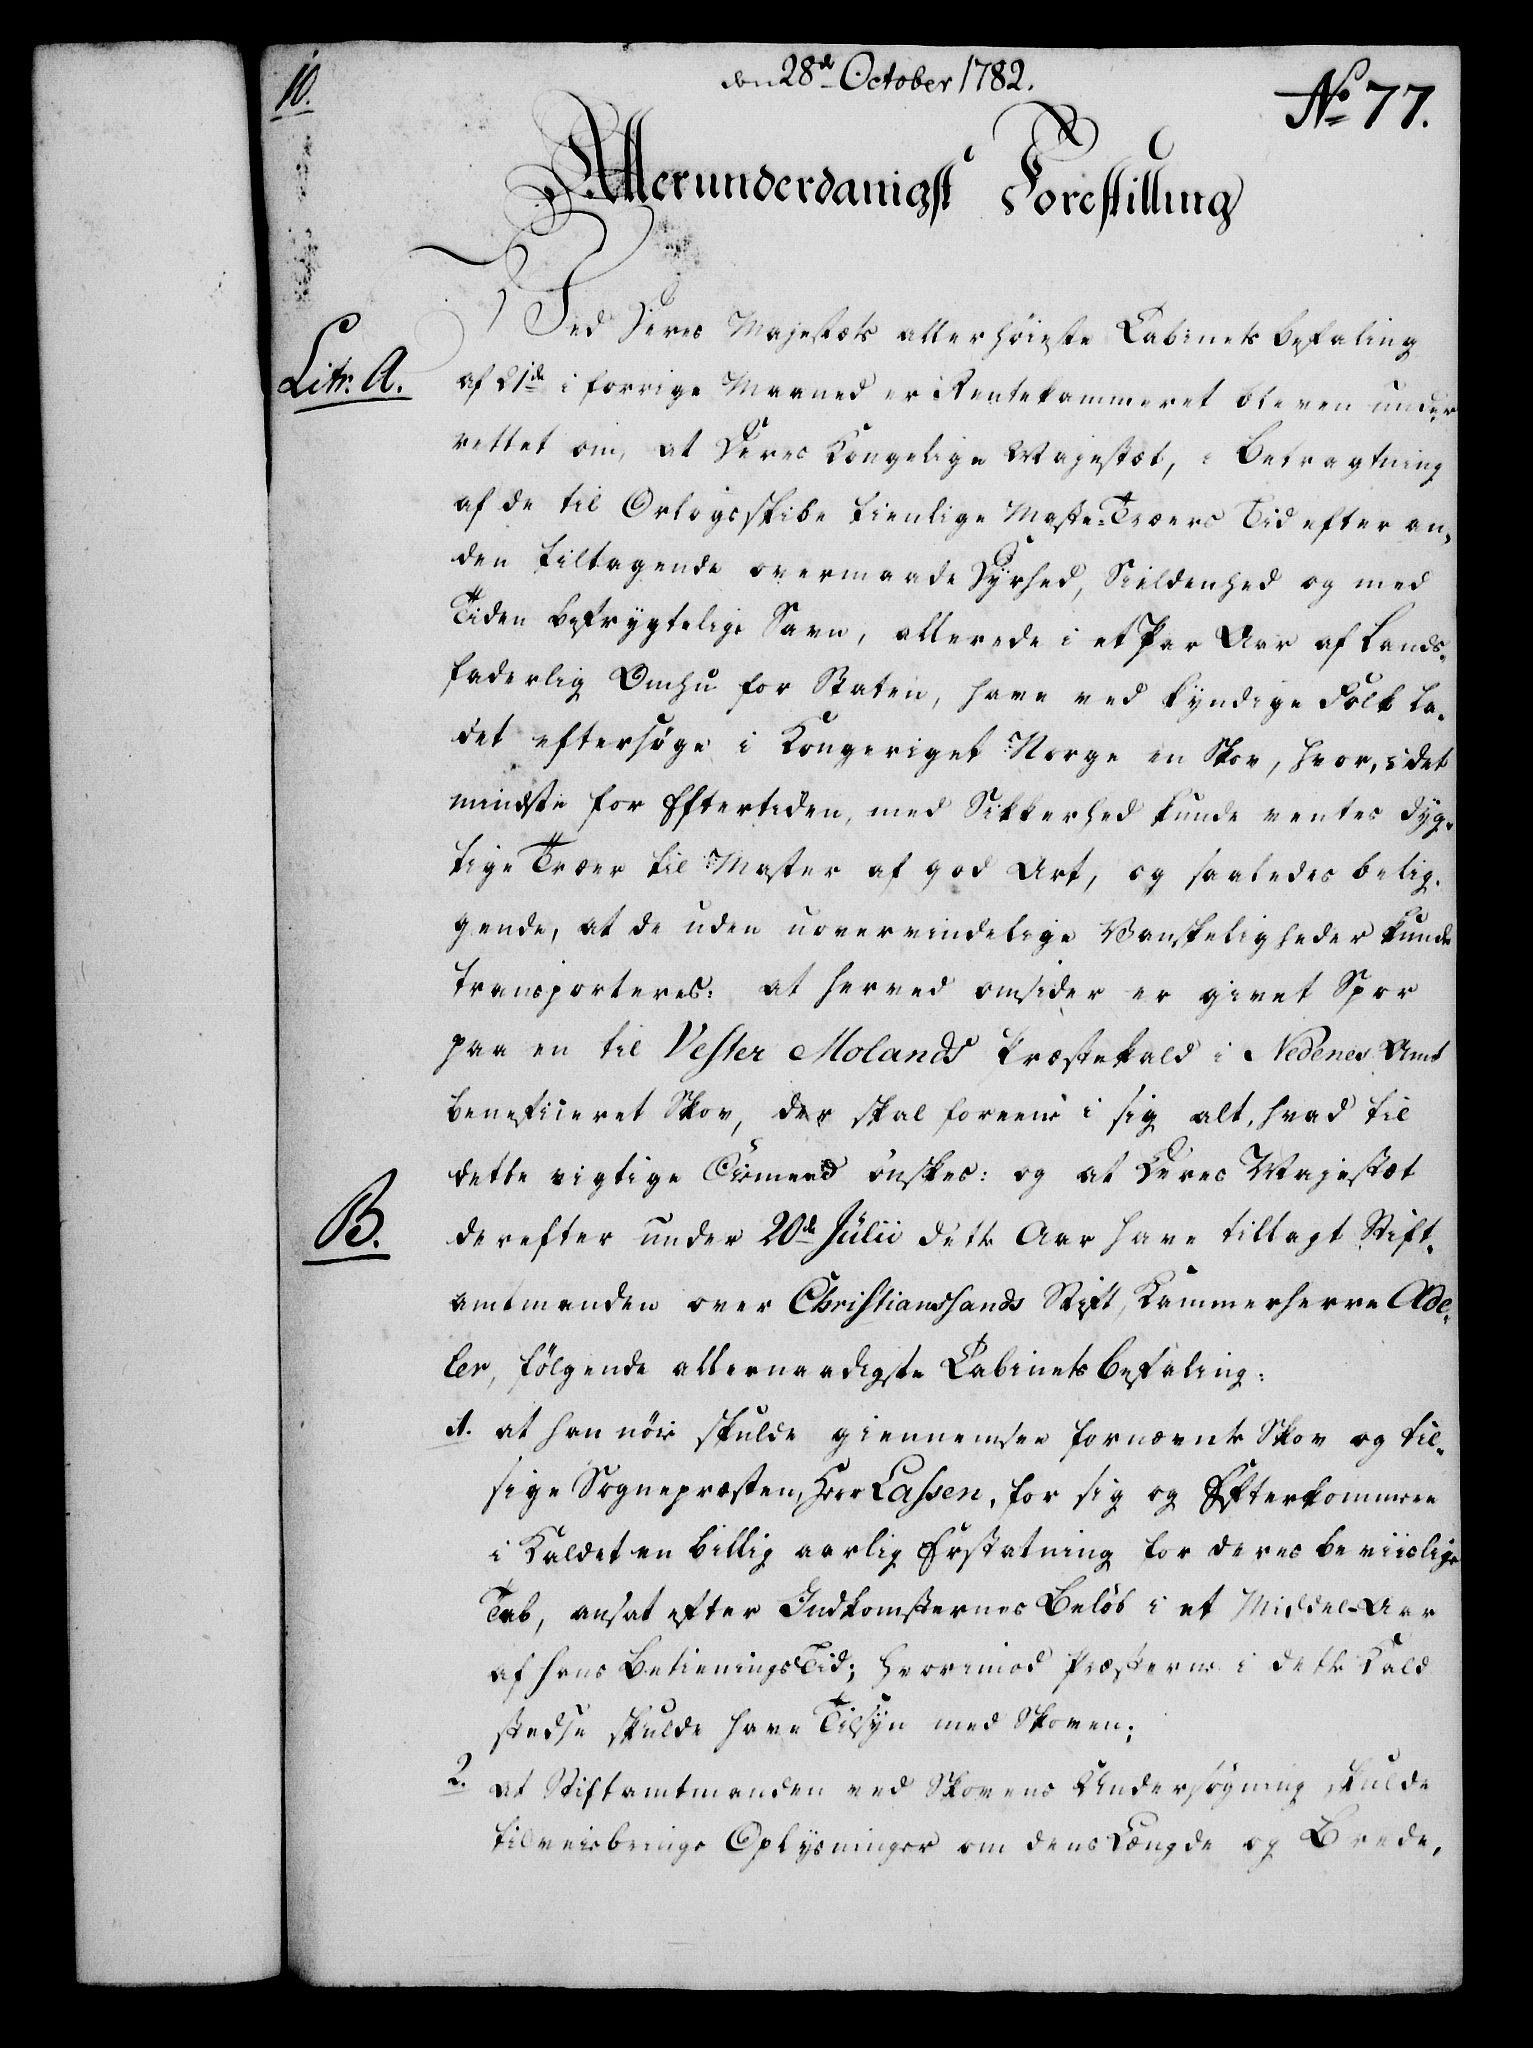 10.
den 28de October 1782.
No 77.
Allerunderdanigst Forestilling
Litr. A.
Ved Deres Majestæts allerhöieste Cabinets Befaling
af 21de i forrige Maaned er Rentekammeret bleven under-
rettet om, at Deres Kongelige Majestæt, i Betragtning
af de til Orlogsskibe tienlige Maste-Træers Tid efter an-
den tiltagende overmaade Dyrhed, Sieldenhed og med
Tiden befrygtelige Savn, allerede i et Par Aar af Lands-
faderlig Omhu for Staten, have ved kyndige Folk la-
det eftersøge i Kongeriget Norge en Skov, hvor, i det
mindste for Eftertiden, med Sikkerhed kunde ventes dyg-
tige Træer til Master af god Art, og saaledes belig-
gende, at de uden uovervindelige Vanskeligheder kunde
transporteres: at herved omsider er givet Spor
paa en til Vester Molands Præstekald i Nedenes Amt
beneficeret Skov, der skal foreene i sig alt, hvad til
dette vigtige Öiemeed ønskes: og at Deres Majestæt
B.
derefter under 20de Julii dette Aar have tillagt Stift-
amtmanden over Christianssands Stift, Kammerherre Ade-
ler, følgende allernaadigste Cabinets Befaling:
1. at han nöie skulde giennemsee fornævnte Skov og til-
sige Sognepræsten, Herr Lassen, for sig og Efterkommere
i Kaldet en billig aarlig Erstatning for deres beviislige
Tab, ansat efter Indkomsternes Beløb i et Middel-Aar
af hans Betienings Tid; hvorimod Præsterne i dette Kald
stedse skulde have Tilsyn med Skoven;
2. at Stiftamtmanden ved Skovens Undersøgning skulde
tilveiebringe Oplysninger om dens Længde og Brede,